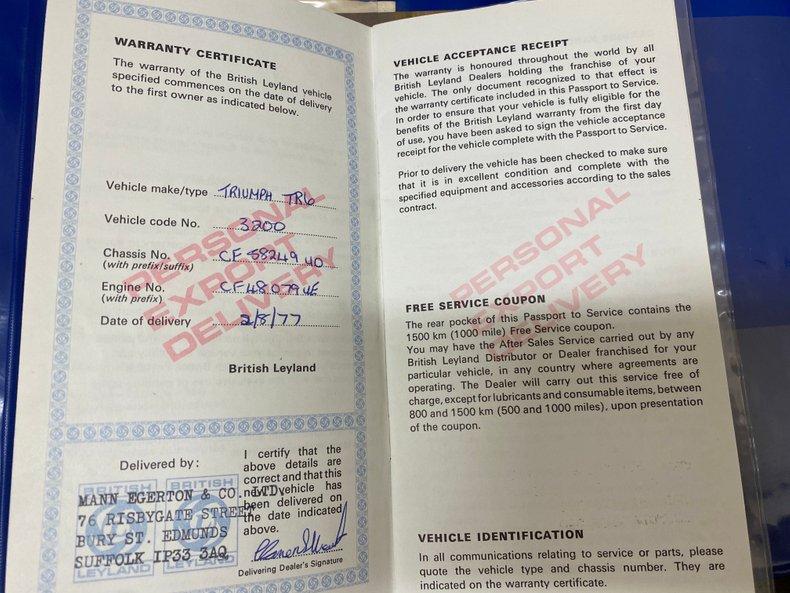 WARRANTY CERTIFICATE
The warranty of the British Leyland vehicle
specified commences on the date of delivery
to the first owner as indicated below.
Vehicle make/type TRIUMPH TR6
Vehicle code No. 3200
Chassis No. CF 58249 UO
(with prefix/suffix)
Engine No. CF48079UE
(with prefix)
Date of delivery 2/8/77
PERSONAL
EXPORT
DELIVERY
British Leyland
Delivered by:
BRITISH LEYLAND
BRITISH LEYLAND
MANN EGERTON & CO. LTD.
76 RISBYGATE STREET
BURY ST. EDMUNDS
SUFFOLK IP33 3AQ
I certify that the
above details are
correct and that this
new vehicle has
been delivered on
the date indicated
above.
Delivering Dealer's Signature
VEHICLE ACCEPTANCE RECEIPT
The warranty is honoured throughout the world by all
British Leyland Dealers holding the franchise of your
vehicle. The only document recognized to that effect is
the warranty certificate included in this Passport to Service.
In order to ensure that your vehicle is fully eligible for the
benefits of the British Leyland warranty from the first day
of use, you have been asked to sign the vehicle acceptance
receipt for the vehicle complete with the Passport to Service.
Prior to delivery the vehicle has been checked to make sure
that it is in excellent condition and complete with the
specified equipment and accessories according to the sales
contract.
PERSONAL
EXPORT
DELIVERY
FREE SERVICE COUPON
The rear pocket of this Passport to Service contains the
1500 km (1000 mile) Free Service coupon.
You may have the After Sales Service carried out by any
British Leyland Distributor or Dealer franchised for your
particular vehicle, in any country where agreements are
operating. The Dealer will carry out this service free of
charge, except for lubricants and consumable items, between
800 and 1500 km (500 and 1000 miles), upon presentation
of the coupon.
VEHICLE IDENTIFICATION
In all communications relating to service or parts, please
quote the vehicle type and chassis number. They are
indicated on the warranty certificate.